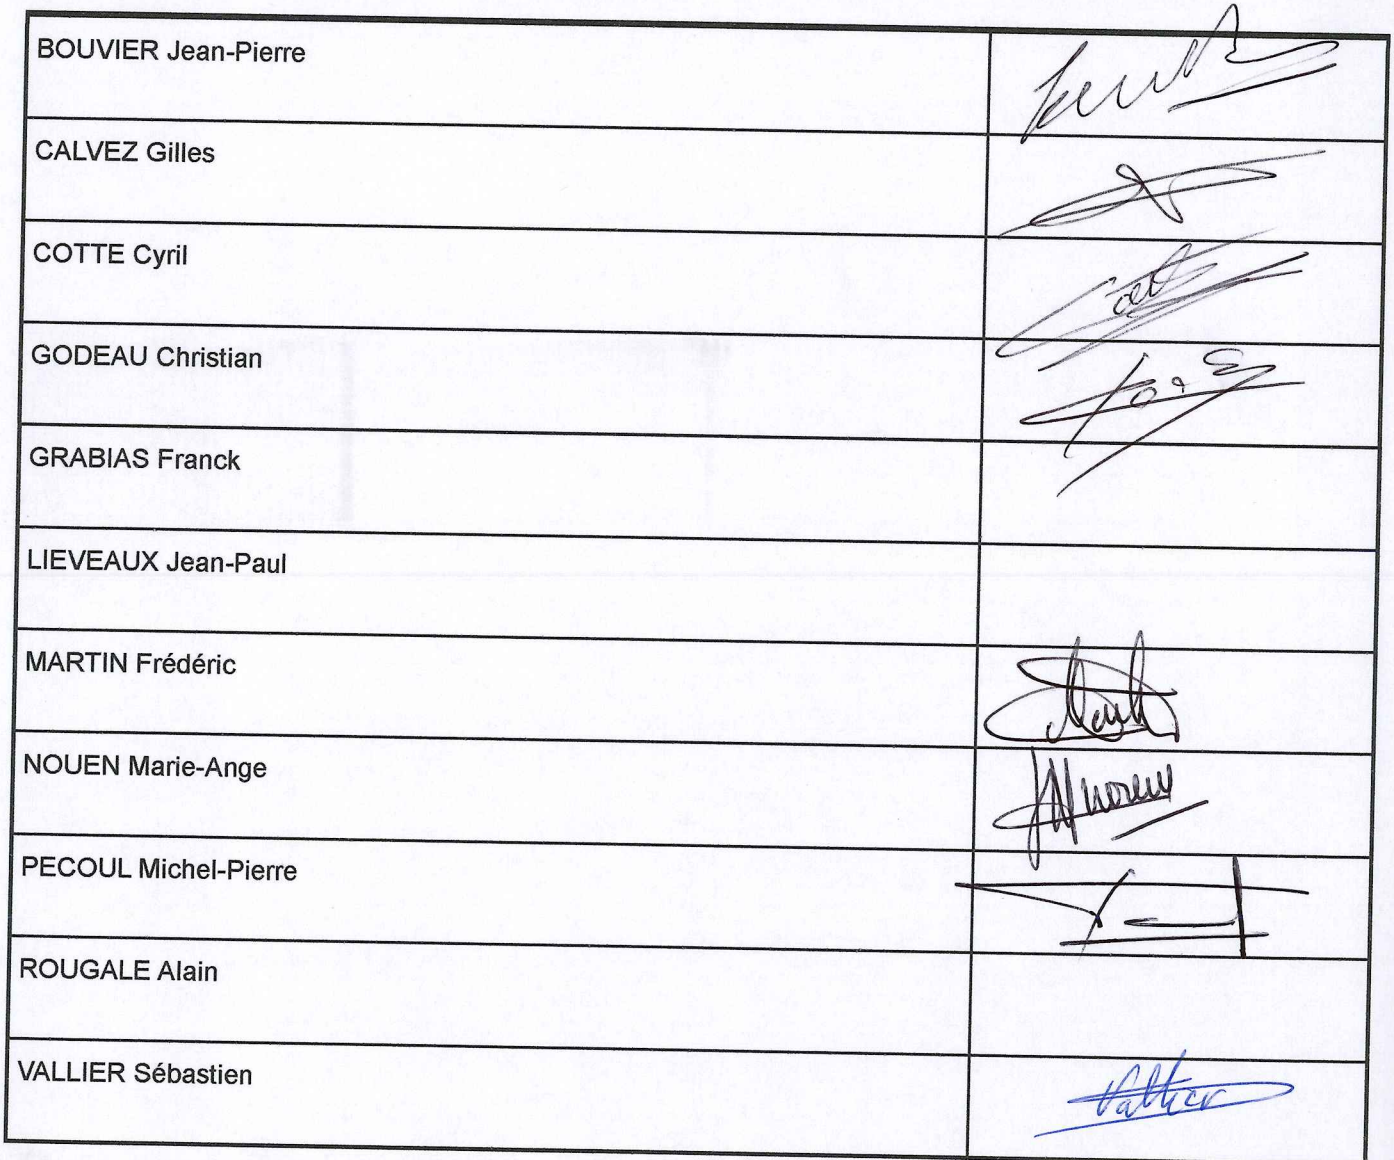 BOUVIER Jean-Pierre
CALVEZ Gilles
COTTE Cyril
GODEAU Christian
GRABIAS Franck
LIEVEAUX Jean-Paul
MARTIN Frédéric
NOUEN Marie-Ange
PECOUL Michel-Pierre
ROUGALE Alain
VALLIER Sébastien Vallier